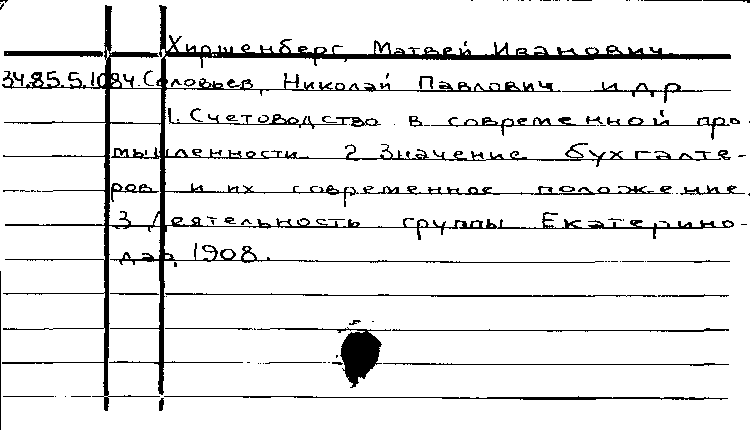 Хиршенберг, Матвей Иванович
34.85.5.1084. Соловьев, Николай Павлович и др
1. Счетоводство в современной про-
мышленности 2 Значение бухгалте-
ров и их современное положение.
3 Деятельность группы Екатерино-
дар, 1908.